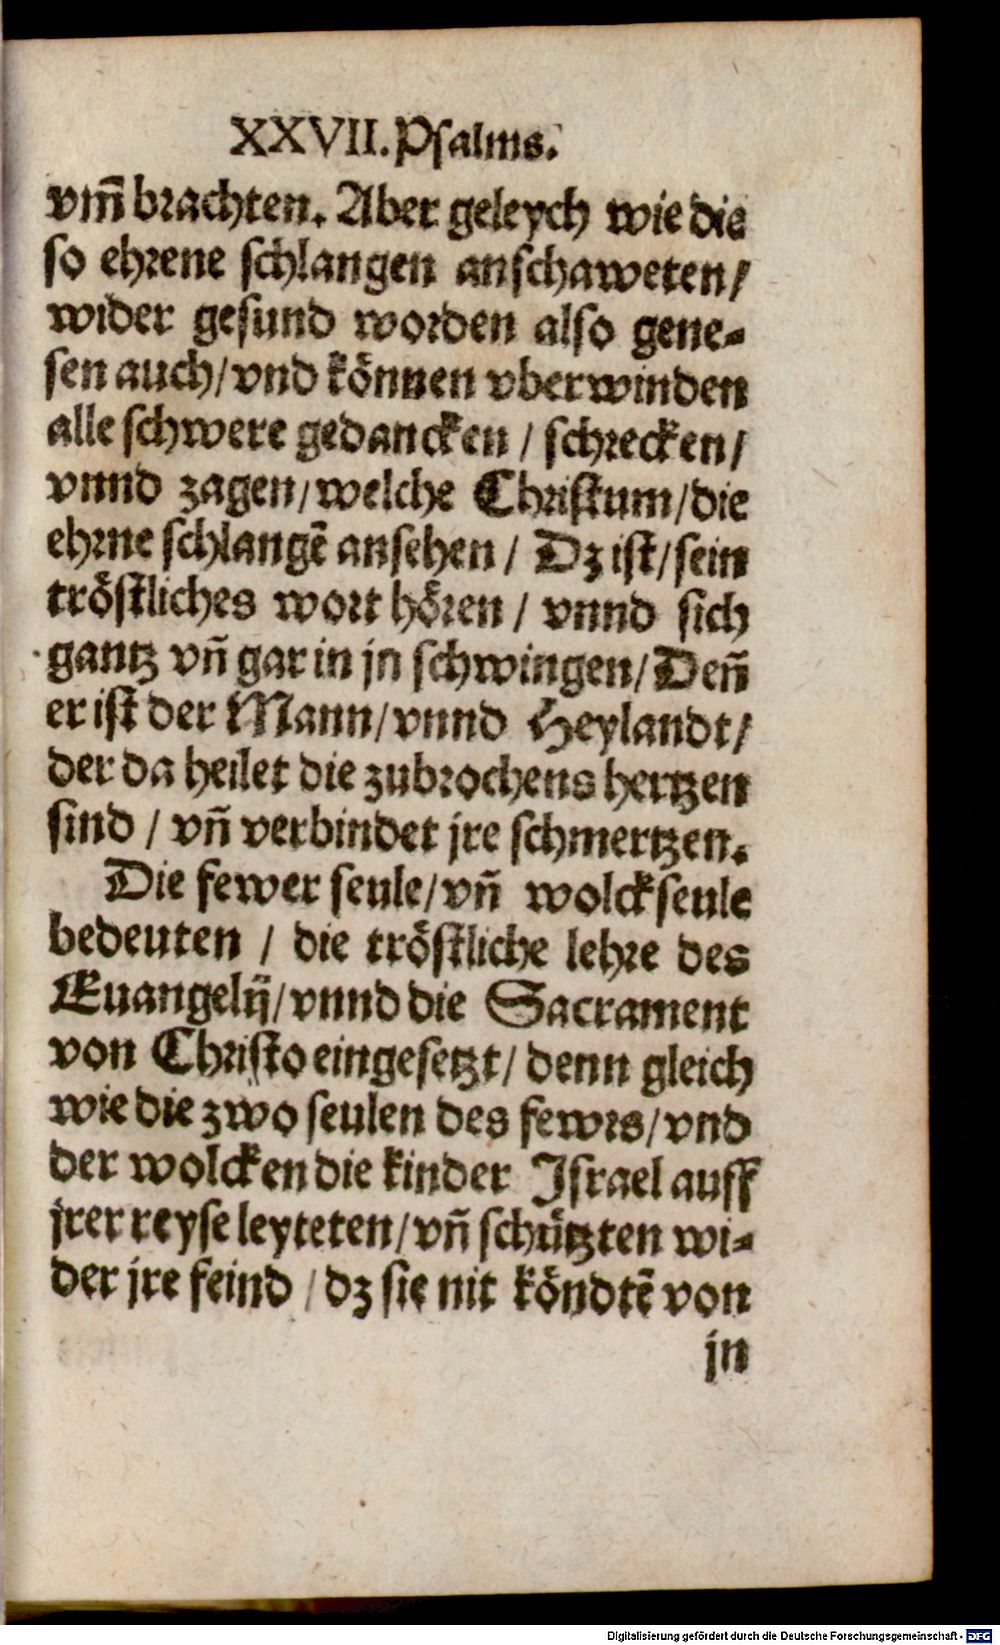 XXVII. Psalms.
vm̄ brachten. Aber geleych wie die
so ehrene schlangen anschaweten/
wider gesund worden also gene⸗
sen auch/ vnd können vberwinden
alle schwere gedancken / schrecken/
vnnd zagen/ welche Christum/ die
ehrne schlangē ansehen / Dz ist/ sein
tröstliches wort hören / vnnd sich
gantz vn̄ gar in jn schwingen/ Den̄
er ist der Mann/ vnnd Heylandt/
der da heilet die zubrochens hertzen
sind / vn̄ verbindet jre schmertzen.
Die fewer seule/ vn̄ wolckseule
bedeuten / die tröstliche lehre des
Euangelij/ vnnd die Sacrament
von Christo eingesetzt/ denn gleich
wie die zwo seulen des fewrs/ vnd
der wolcken die kinder Israel auff
jrer reyse leyteten/ vn̄ schützten wi⸗
der jre feind / dz sie nit köndtē von
jn
Digitalisierung gefördert durch die Deutsche Forschungsgemeinschaft - DFG